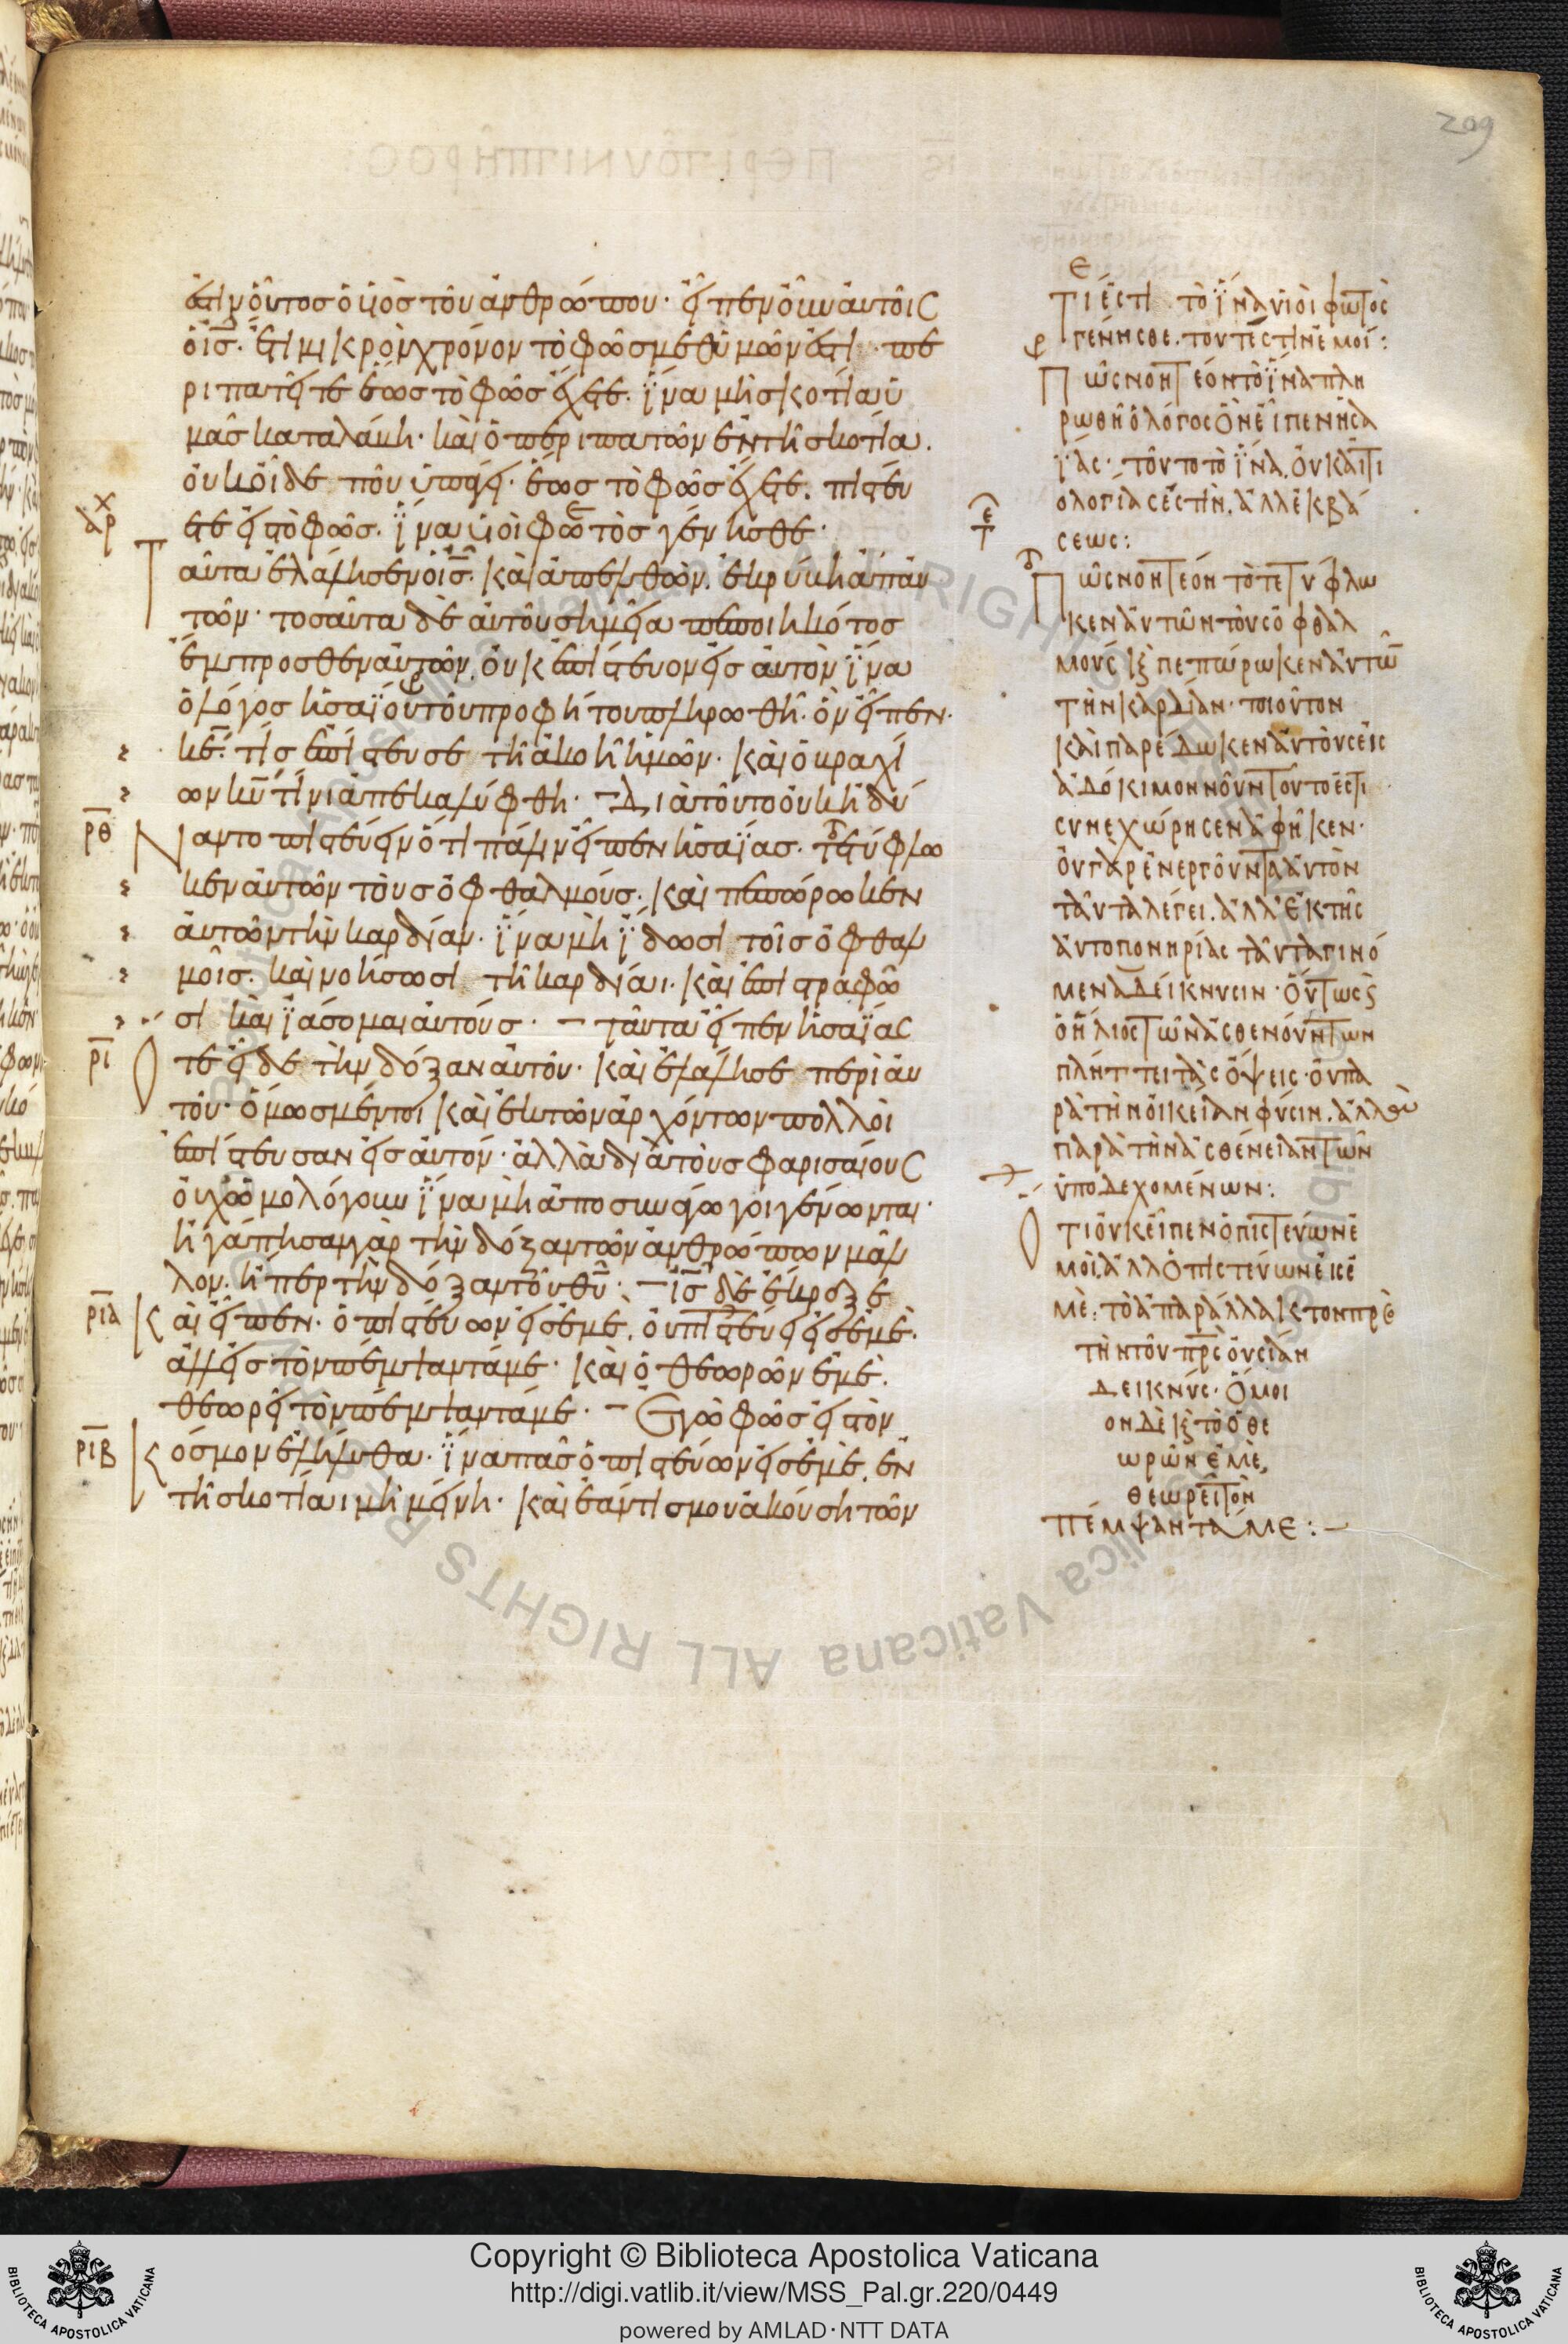 209
ἐστιν οὗτος ὁ υἱὸς τοῦ ἀνθρώπου· εἶπεν οὖν αὐτοῖς
ὁ ις̅· ἔτι μικρὸν χρόνον τὸ φῶς μεθ ὑμῶν ἐστι· πε
ριπατεῖτε ἕως τὸ φῶς ἔχετε· ἵνα μὴ σκοτία ὑ
μᾶς καταλάβη· καὶ ὁ περιπατῶν ἐν τῆ σκοτία·
οὐκ οἶδε ποῦ ὑπάγει· ἕως τὸ φῶς ἔχετε· πιστεύ
ετε εἰς τὸ φῶς· ἵνα υἱοὶ φωτὸς γένησθε·
ταῦτα ἐλάλησεν ὁ ις̅· καὶ ἀπελθὼν· ἐκρύβη ἀπ αὐ
τῶν· τοσαῦτα δὲ αὐτοῦ σημεῖα πεποιηκότος
ἔμπροσθεν αὐτῶν· οὐκ ἐπίστευον εἰς αὐτὸν ἵνα
ὁ λόγος ἠσαΐου τοῦ προφήτου πληρωθῆ· ὃν εἶπεν·
κε̅· τίς ἐπίστευσε τῆ ἀκοῆ ἡμῶν· καὶ ὁ βραχί
ων κυ̅ τίνι ἀπεκαλύφθη· διατοῦτο οὐκ ἠδύ
ρθ ναντο πιστεύειν ὅτι πάλιν εἶπεν ἠσαΐας· τετύφλω
κεν αὐτῶν τοὺς ὀφθαλμούς· καὶ πεπώρωκεν
αὐτῶν τὴν καρδίαν· ἵνα μὴ ἴδωσι τοῖς ὀφθαλ
μοῖς· καὶ νοήσωσι τῆ καρδίαι· καὶ ἐπιστραφῶ
σι καὶ ἰάσομαι αὐτούς· ταῦτα εἶπεν ἠσαΐας
ρι ὅτε εἶδε τὴν δόξαν αὐτοῦ· καὶ ἐλάλησε περὶ αὐ
τοῦ· ὅμως μέντοι καὶ ἐκ τῶν ἀρχόντων πολλοὶ
ἐπίστευσαν εἰς αὐτόν· ἀλλὰ διὰ τοὺς φαρισαίους
οὐχ ὡμολόγουν ἵνα μὴ ἀποσυνάγωγοι γένωνται·
ἠγάπησαν γὰρ τὴν δόξαν τῶν ἀνθρώπων μᾶλ
λον· ἤπερ τὴν δόξαν τοῦ θυ̅: ις̅ δὲ ἔκραξε
ρια καὶ εἶπεν· ὁ πιστεύων εἰς ἐμὲ· οὐ πιστεύει εἰς ἐμὲ·
ἀλλ εἰς τὸν πέμψαντά με· καὶ ὁ θεωρῶν ἐμὲ·
θεωρεῖ τὸν πέμψαντά με· Ἐγὼ φῶς εἰς τὸν
ριβ κόσμον ἐλήλυθα· ἵνα πᾶς ὁ πιστεύων εἰς ἐμὲ· ἐν
τῆ σκοτίαι μὴ μείνη· καὶ ἐάν τις μου ἀκούση τῶν
ε
Τί ἐστι τὸ ἵνα υἱοὶ φωτὸς
γένησθε· τουτέστιν ἐμοί:
Πῶς νοητέον τὸ ἵνα πλη
ρωθῆ ὁ λόγος ὃν εἶπεν ἠσα
ΐας· τοῦτο τὸ ἵνα· οὐκ αἰτι
ολογίας ἐστὶν· ἀλλ ἐκβά
σεως:
Πῶς νοητέον τὸ τετύφλω
κεν αὐτῶν τοὺς ὀφθαλ
μοὺς κ πεπώρωκεν αὐτῶ
τὴν καρδίαν· ποιοῦτον
καὶ παρέδωκεν αὐτοὺς εἰς
ἀδόκιμον νοῦν τουτέστι
συνεχώρησεν ἀφῆκεν·
οὐ γὰρ ἐνεργοῦντα αὐτὸν
ταῦτα λέγει· ἀλλ ἐκ τῆς
αὐτοπονηρίας ταῦτα γινό
μενα δείκνυσιν· οὕτως κ
ὁ ἥλιος τῶν ἀσθενούντων
πλήττει τὰς ὄψεις· οὐ πα
ρὰ τὴν οἰκείαν φύσιν· ἀλλὰ
παρὰ τὴν ἀσθένειαν τῶν
ὑποδεχομένων:
Ὅτι οὐκ εἶπεν ὁ πιστεύων ἐ
μοὶ· ἀλλ ὁ πιστεύων εἰς ἐ
μὲ: τὸ ἀπαράλλακτον πρὸ
τὴν τοῦ πρς̅ οὐσίαν
δεικνύς· ὅμοι
ον δὲ κ τὸ ὁ θε
ωρῶν ἐμὲ,
θεωρεῖ τὸν
πέμψαντά με:
Copyright © Biblioteca Apostolica Vaticana
http://digi.vatlib.it/view/MSS_Pal.gr.220/0449
powered by AMLAD·NTT DATA
BIBLIOTECA APOSTOLICA VATICANA
BIBLIOTECA APOSTOLICA VATICANA